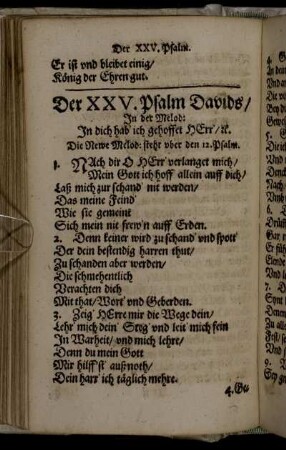 Der XXV. Psalm.
Er ist vnd bleibet einig/
König der Ehren gut.
Der XXV. Psalm Davids/
In der Melod:
In dich hab ich gehoffet HErr/ ꝛc.
Die Newe Melod: steht vber den 12. Psalm.
1. NAch dir O HErr verlanget mich/
Mein Gott ich hoff allein auff dich/
Laß mich zur schand nit werden/
Das meine Feind
Wie sie gemeint
Sich mein nit frew'n auff Erden.
2. Denn keiner wird zu schand vnd spott
Der dein bestendig harren thut/
Zu schanden aber werden/
Die schmehentlich
Verachten dich
Mit that/ Wort vnd Geberden.
3. Zeig HErre mir die Wege dein/
Lehr mich dein Steg vnd leit mich fein
In Warheit/ vnd mich lehre/
Denn du mein Gott
Mir hilffst auß noth/
Dein harr ich täglich mehre.
4. Ge-